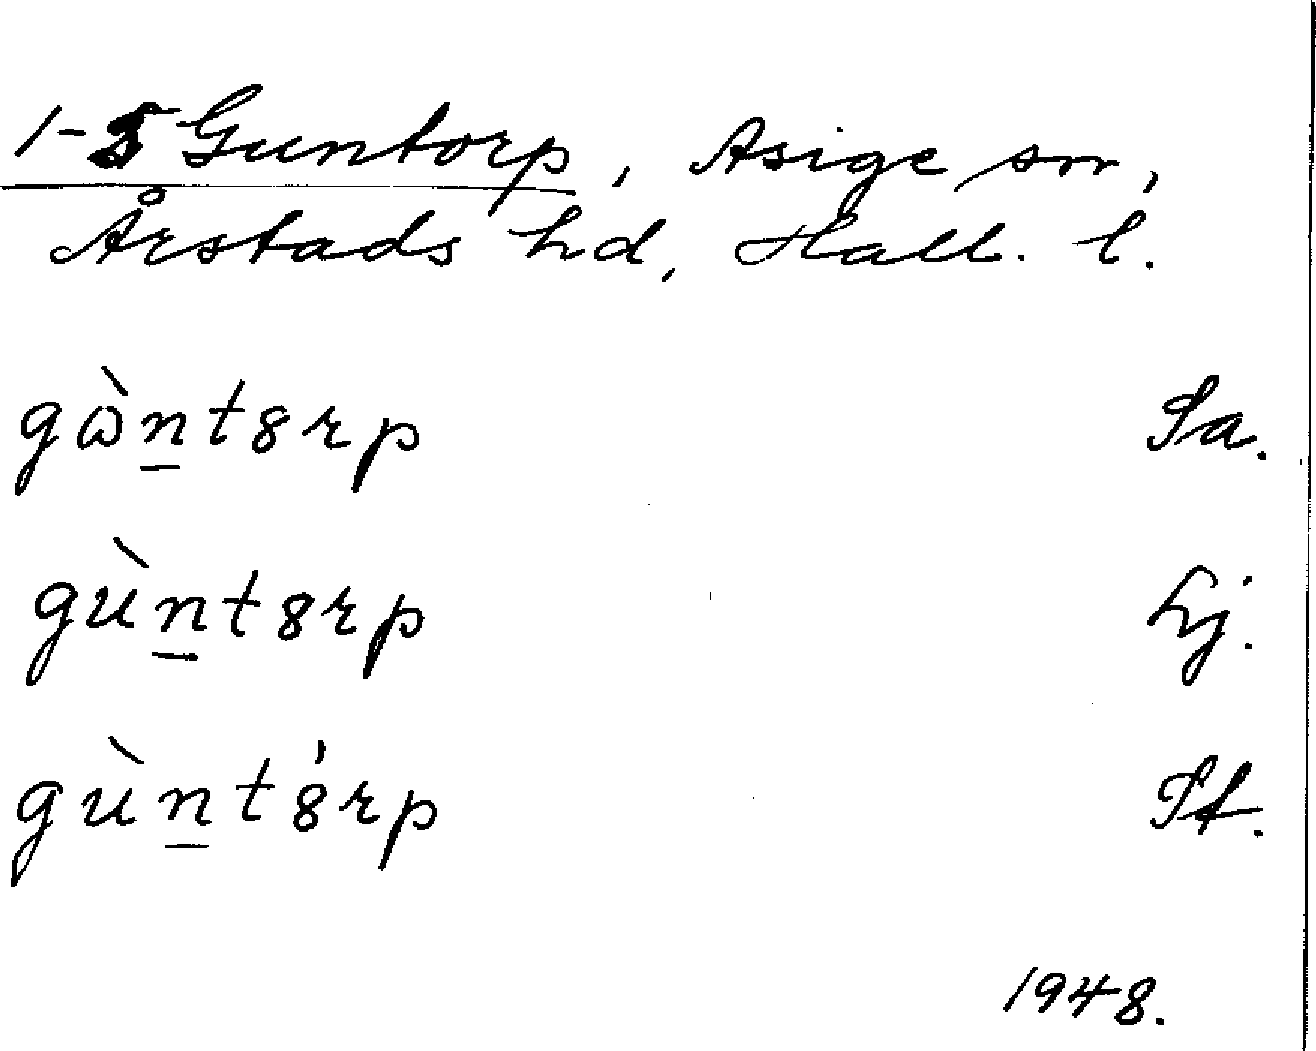 1-5 Guntorp, Asige sn,
Årstads hd, Hall. l.
gὼn̲t8rp Sa.
gùn̲t8rp Lj.
gùn̲t8́rp Sf.
1948.